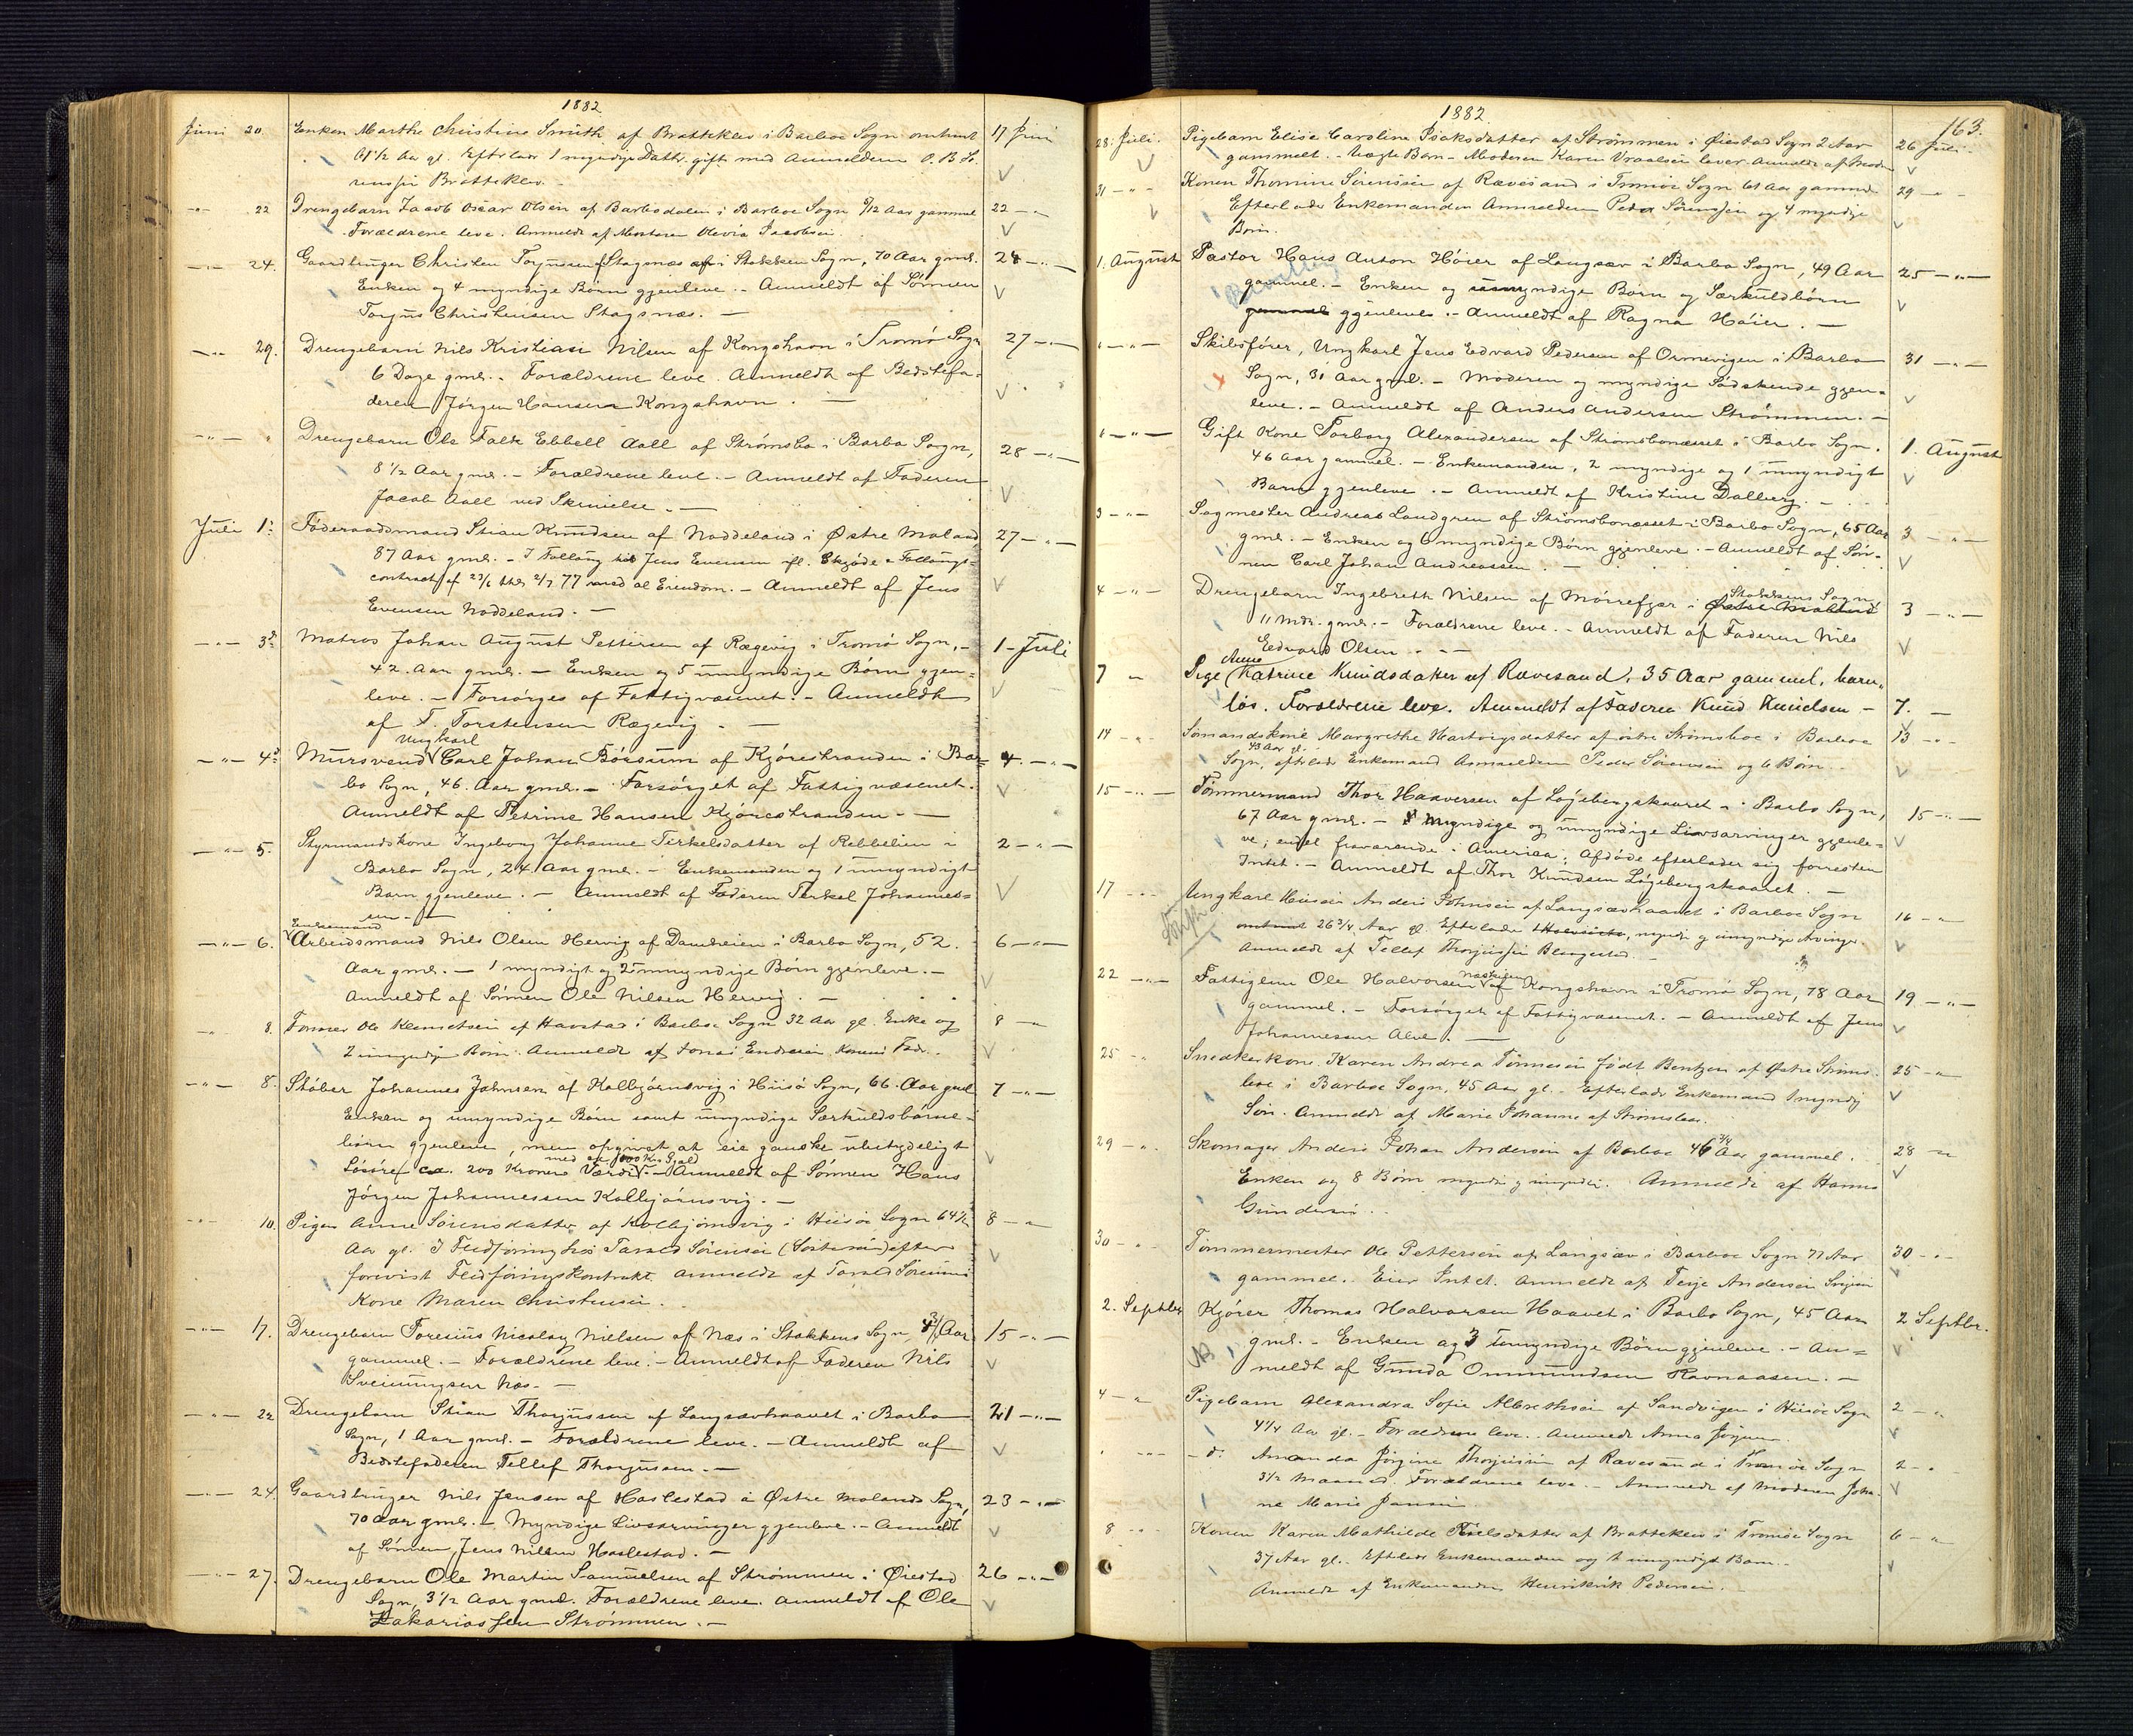 1882
Juni 20. Enken Marthe Christine Smith af Bratteklev i Barboe Sogn omtrent 17 Juni
Aar gl. Efterlader 1 myndig Datter gift med Anmelderen O. B.
Bratteklev.
-"- 22 Drengebarn Jacob Oscar Olsen af Barbodalen i Barboe Sogn, 9/12 Aar gammel 22 -"-
Forældrene leve. Anmeldt af Mosteren Olevia Jacobsen.
-"- 24. Gaardbruger Christen Torjussen Stagsnæs i Stokken Sogn, 70 Aar gml. 24 -"-
Enken og 4 myndige Børn gjenleve. - Anmeldt af Sønnen
Torjus Christensen Stagsnæs. -
-"- 29. Drengebarn Nils Kristian Nilsen af Kongshavn i Tromø Sogn 27 -"-
6 Dage gml. - Forældrene leve. Anmeldt af Bedstefa-
deren Jørgen Hansen Kongshavn. -
-"- " Drengebarn Ole Falk Ebbell Aall af Strømsbo i Barbo Sogn, 28 -"-
8 1/2 Aar gml. - Forældrene leve. - Anmeldt af Faderen
Jacob Aall ved Skrivelse. -
Juli 1: Føderaadsmand Stian Knudsen af Noddeland i Østre Moland 27 -"-
87 Aar gml. - I Follaug hos Jens Evensen ifl. Skjøde & Follaugs-
contract af 23/6 thl. 2/7 77 med al Eiendom. - Anmeldt af Jens
Evensen Noddeland. -
-"- 3: Matros Johan August Pettersen af Rægevig i Tromø Sogn, - 1 - Juli
42 Aar gml. - Enken og 5 umyndige Børn gjen-
leve. - Forsørges af Fattigvæsenet. - Anmeldt
af T. Torstensen Rægevig. -
Ungkarl
-"- 4: Mursvend Carl Johan Børsum af Kjørestranden i Bar- 4 -"-
bo Sogn, 46 Aar gml. - Forsørget af Fattigvæsenet.
Anmeldt af Petrine Hansen Kjørestranden. -
-"- 5. Styrmandskone Ingeborg Johanne Terkelsdatter af Rebbelien i 2 -"-
Barbo Sogn, 24 Aar gml. - Enkemanden og 1 umyndigt
Barn gjenleve. - Anmeldt af Faderen Terkel Johannes-
sen. -
Enkemand
-"- 6. Arbeidsmand Nils Olsen Hervig af Damheien i Barbo Sogn, 52. 6 -"-
Aar gml. - 1 myndigt og 2 umyndige Børn gjenleve. -
Anmeldt af Sønnen Ole Nilsen Hervig. -
-"- 8. Ole Klemetsen af Havstad i Barboe Sogn 32 Aar gl. Enke og 8 -"-
2 umyndige Børn. Anmeldt af Jonas Endresen Konens Fader.
-"- 8. Støber Johannes Johnsen af Kolbjørnsvig i Hisø Sogn, 66. Aar gml 7 -"-
Enken og umyndige Børn samt umyndige Særkuldsbørne-
børn gjenleve, men opgivet at eie ganske ubetydeligt
med ca 1000 Krs Gjæld
Løsøre ca. 200 Kroner Værdi. - Anmeldt af Sønnen Hans
Jørgen Johannessen Kolbjørnsvig. -
-"- 10. Pigen Anne Sørensdatter af Kolbjørnsvig i Hisø Sogn 64 1/2 8 -"-
Aar gl. I Fledføring hos Tarald Sørensen efter
forevist Fledføringskontrakt. Anmeldt af Tarald Sørensens
Kone Maren Christensen.
-"- 17. Drengebarn Toresius Nicolay Nielsen af Næs i Stokkens Sogn, 3/4 Aar 15 -"-
gammel. - Forældrene leve. - Anmeldt af Faderen Nils
Sveinungsen Næs. -
-"- 22 Drengebarn Stian Thorjussen af Langsævhaavet i Barbo 21 -"-
Sogn, 1 Aar gml. - Forældrene leve. - Anmeldt af
Bedstefaderen Tellef Thorjussen. -
-"- 24. Gaardbruger Nils Jensen af Haslestad i Østre Molands Sogn, 23 -"-
70 Aar gml. - Myndige Livsarvinger gjenleve. - Anmeldt
af Sønnen Jens Nilsen Haslestad. -
-"- 27. Drengebarn Ole Martin Samuelsen af Strømmen i Øiestad 26 -"-
Sogn, 3 1/2 Aar gml. Forældrene leve. Anmeldt af Ole
Zakariassen Strømmen. -
1882. 163.
28. Juli. Pigebarn Elise Caroline Isaksdatter af Strømmen i Øiestad Sogn 2 Aar 26 Juli -
gammelt. - Uægte Barn - Moderen Karen Vraalsen lever. Anmeldt af Moderen
31 -"- Konen Thomine Sørensen af Rævesand i Tromøe Sogn 61 Aar gammel 29 -"-
Efterlader Enkemanden Anmelderen Peder Sørensen og 4 myndige
Børn.
1. August Pastor Hans Anton Høier af Langsæv i Barbo Sogn, 49 Aar 25 -"-
gammel. - Enken og umyndige Børn og Særkuldbørn
gammel gjenleve. - Anmeldt af Ragna Høier. -
"-"- Skibsfører, Ungkarl Jens Edvard Pedersen af Ormevigen i Barbo 31 -"-
Sogn, 31 Aar gml. - Moderen og myndige Sødskende gjen-
leve. - Anmeldt af Anders Andersen Strømmen. -
"-"- Gift Kone Torborg Alexandersen af Strømsbonæsset i Barbo Sogn. 1. August
46 Aar gammel. - Enkemanden, 2 myndige og 1 umyndigt
Barn gjenleve. - Anmeldt af Kristine Dalberg. -
3 -"- Sagmester Andreas Landgren af Strømsbonæsset i Barbo Sogn, 65 Aar 3 -"-
gml. - Enken og 6 myndige Børn gjenleve. - Anmeldt af Søn-
nen Carl Johan Andreassen. -
Stokkens Sogn,
4 -"- Drengebarn Ingebreth Nilsen af Mørefjær i Østre Moland 3 -"-
11 Mdr. gml. - Forældrene leve. - Anmeldt af Faderen Nils
Edvard Olsen. -
Anne
7 " Pige Katrine Knudsdatter af Rævesand, 35 Aar gammel, barn-
løs. Forældrene leve. Anmeldt af Faderen Knud Knudsen - 7. -
14 -"- Sømandskone Margrethe Hartvigsdatter af østre Strømsboe i Barboe 13 -"-
43 Aar gl.
Sogn, efterlader Enkemand Anmelderen Peder Sørensen og 6 Børn.
15 -"- Tømmermand Thor Haaversen af Løgebergskaaret i Barbo Sogn, 15 -"-
67 Aar gml. - Myndige og umyndige Livsarvinger gjenle-
ve, endel fraværende i Amerika; Afdøde efterlader sig forresten
Intet. - Anmeldt af Thor Knudsen Løgebergskaaret. -
17 -"- Ungkarl Anders Johnsen af Langsævhaavet i Barboe Sogn 16 -"-
omtrent 26 3/4 Aar gl. Efterlader myndige og umyndige Arvinger.
Anmeldt af Tellef Thorjussen
22 -"- Fattiglem Ole Halvorsen af Kongshavn i Tromø Sogn, 78 Aar 19 -"-
gammel. - Forsørget af Fattigvæsenet. - Anmeldt af Jens
Johannessen Alve. -
25 -"- Snedkerkone Karen Andrea Tønnesen født Bentzen af Østre Strøms- 25 -"-
boe i Barboe Sogn, 45 Aar gl. - Efterlader Enkemand 1 myndig
Søn. Anmeldt af Marie Johanne af Strømsboe.
29 -"- Skomager Anders Johan Andersen af Barboe 46 3/4 Aar gammel. 28 -"-
Enken og 8 Børn myndige og umyndige. Anmeldt af Hanna
Gundersen.
30 -"- Tømmermester Ole Pettersen af Langsæv i Barboe Sogn 77 Aar 30 -"-
gammel. Eier Intet. Anmeldt af Terje Andersen
2. Septbr Kjører Thomas Halvorsen Haavet i Barbo Sogn, 45 Aar 2 Septbr.
gml. - Enken og 3 umyndige Børn gjenleve. - An-
meldt af Gunda Ommundsen Ravnaasen. -
4 -"- Pigebarn Alexandra Sofie Albrethsen af Sandvigen i Hisøe Sogn 2 -"-
4 1/4 Aar gl. - Forældrene leve. Anmeldt Anna Jørgensen
" -"- - do. Amanda Jørgine Thorjussen af Rævesand i Tromøe Sogn 2 -"-
3 1/2 Maaned. Forældrene leve. - Anmeldt af Moderen Joha-
ne Marie Jansen.
8 -"- Konen Karen Mathilde Nielsdatter af Bratteklev i Tromøe Sogn 6 -"-
37 Aar gl. - Efterlader Enkemanden og 1 umyndigt Barn.
Anmeldt af Enkemanden Henrik Pedersen.